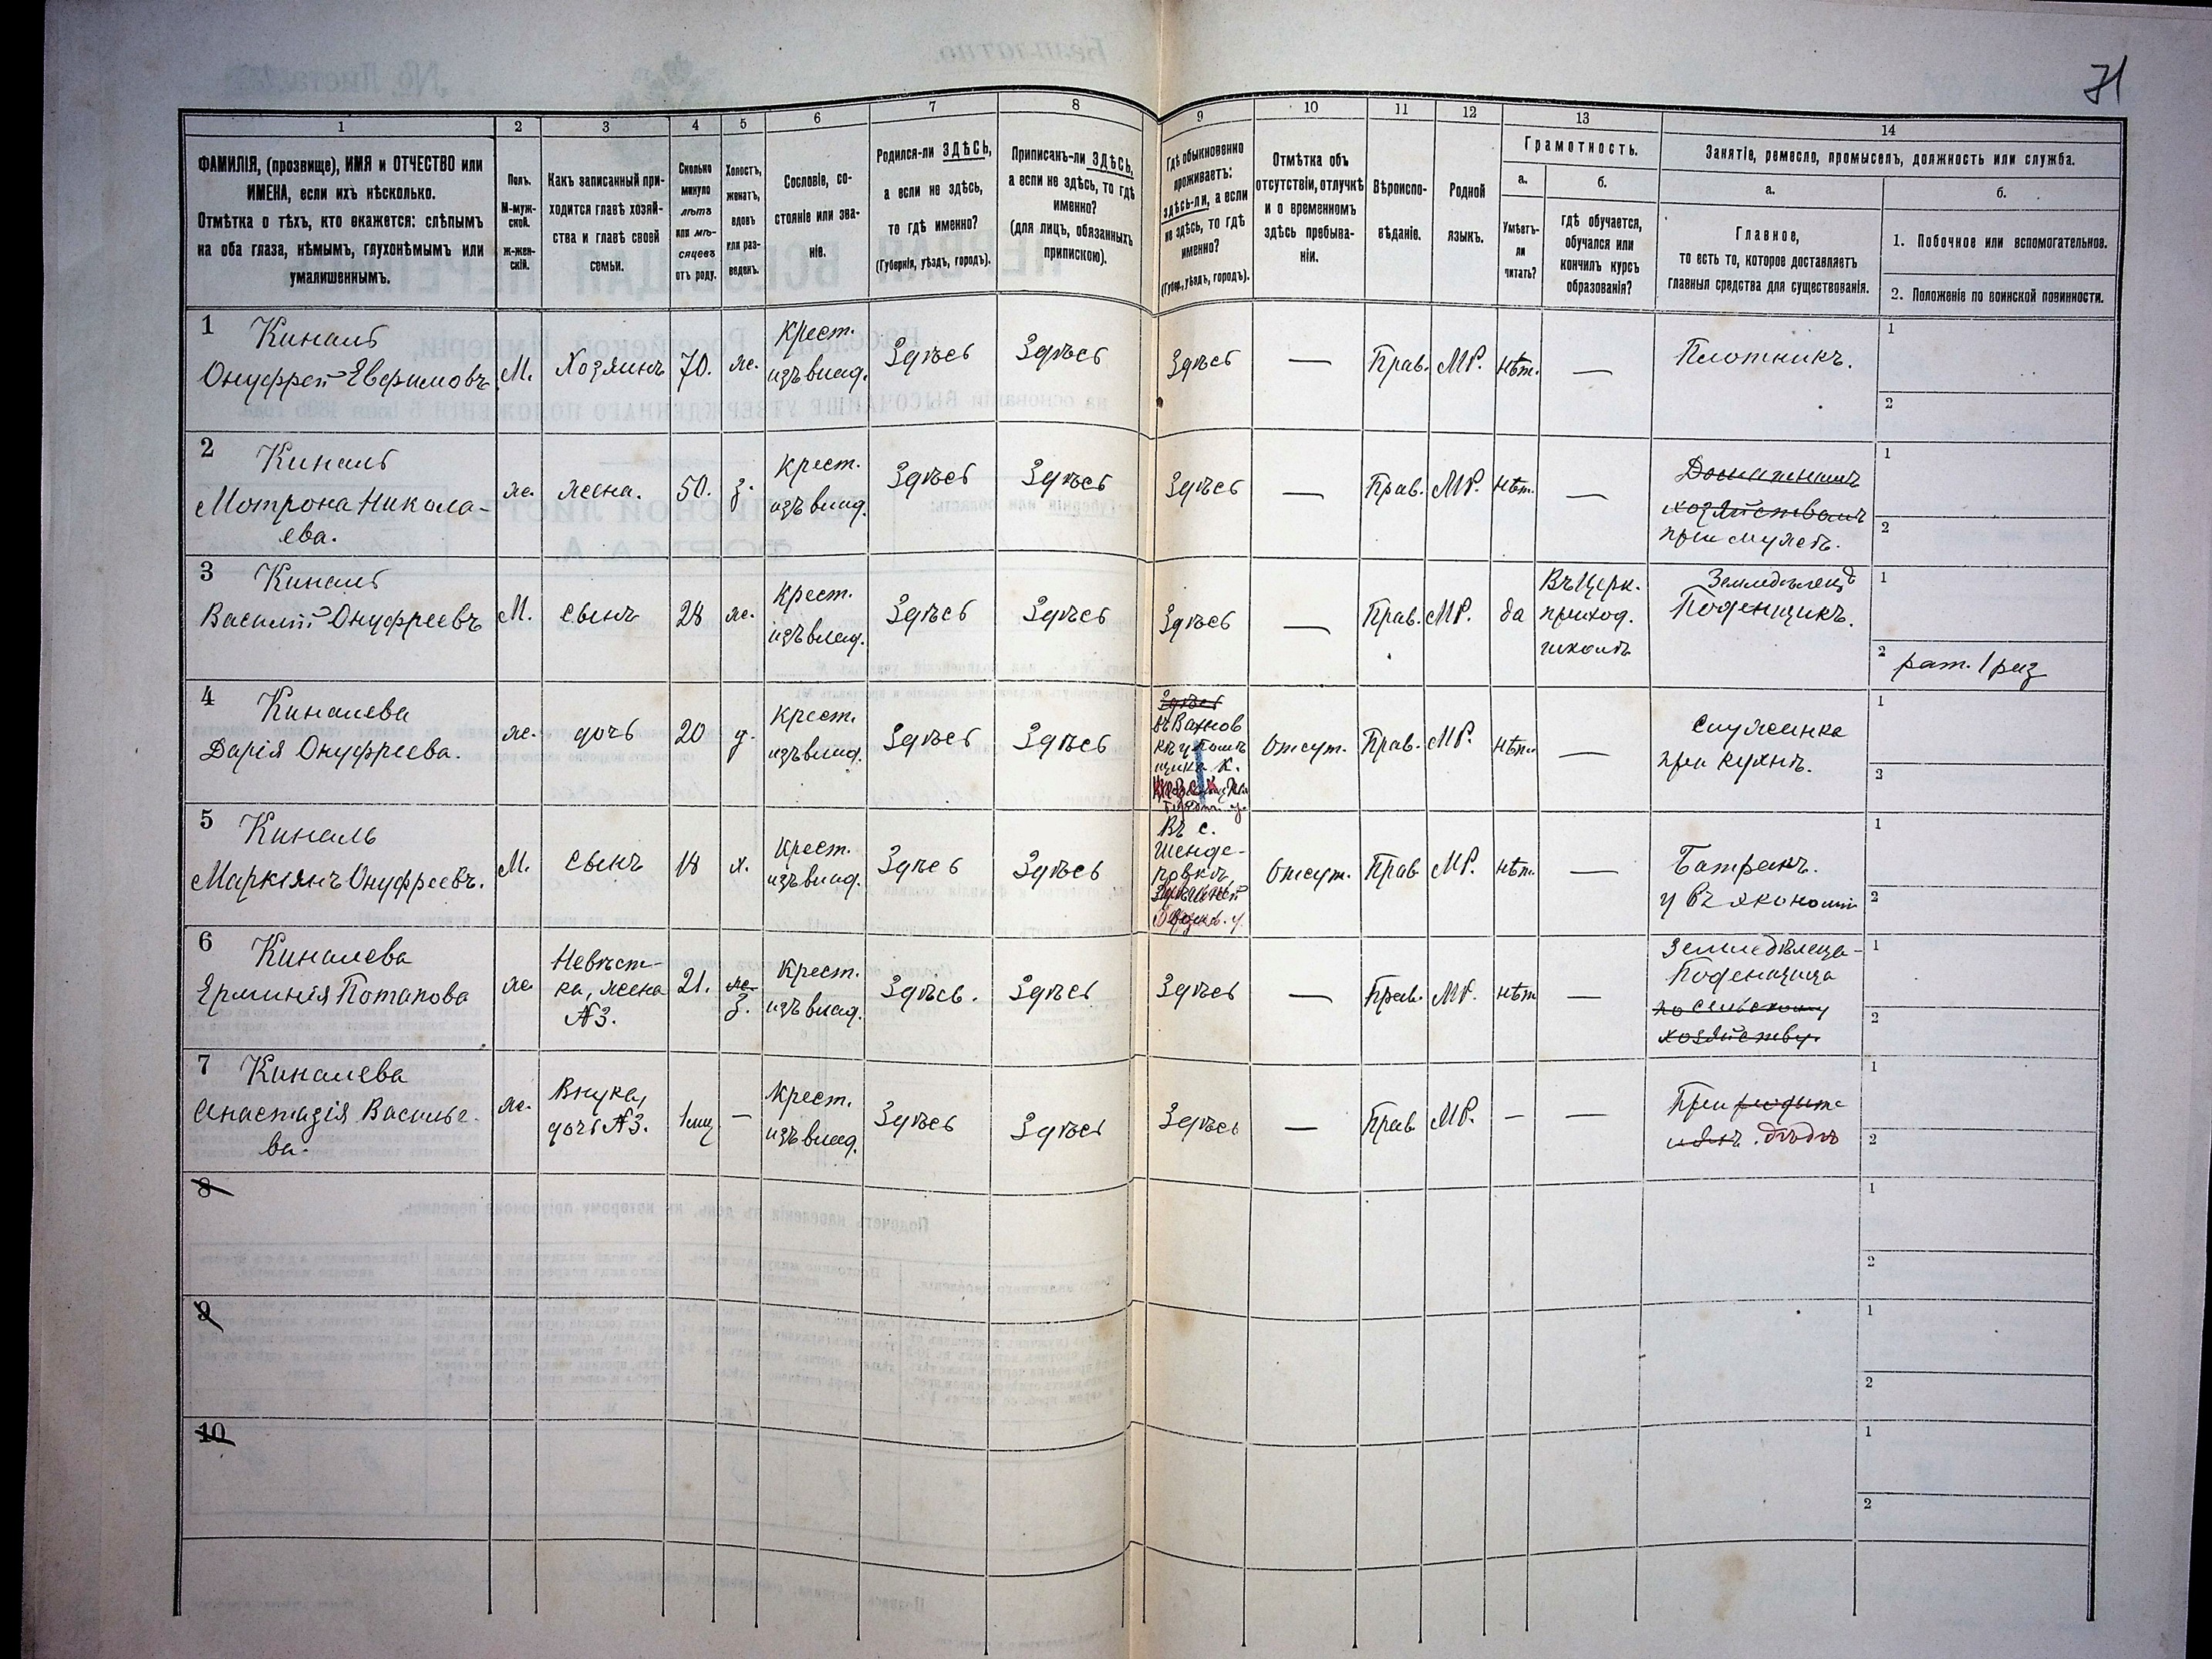 71
1
2
3
4
5
6
7
8
9
10
11
12
13
14
ФАМИЛІЯ, (прозвище), ИМЯ и ОТЧЕСТВО или
ИМЕНА, если ихъ нѣсколько.
Отмѣтка о тѣхъ, кто окажется: слѣпымъ
на оба глаза, нѣмымъ, глухонѣмымъ или
умалишеннымъ.
Полъ.
М-муж-
ской.
ж-жен-
скій.
Какъ записанный при-
ходится главѣ хозяй-
ства и главѣ своей
семьи.
Сколько
минуло
лѣтъ
или мѣ-
сяцевъ
отъ роду.
Холостъ,
женатъ,
вдовъ
или раз-
веденъ.
Сословіе, со-
стояніе или зва-
ніе.
Родился-ли ЗДѢСЬ,
а если не здѣсь,
то гдѣ именно?
(Губернія, уѣздъ, городъ).
Приписанъ-ли ЗДѢСЬ,
а если не здѣсь, то гдѣ
именно?
(для лицъ, обязанныхъ
припискою).
Гдѣ обыкновенно
проживаетъ:
здѣсь-ли, а если
не здѣсь, то гдѣ
именно?
(Губер., уѣздъ, городъ).
Отмѣтка объ
отсутствіи, отлучкѣ
и о временномъ
здѣсь пребыва-
ніи.
Вѣроиспо-
вѣданіе.
Родной
языкъ.
Грамотность.
а.
Умѣетъ-
ли
читать?
б.
гдѣ обучается,
обучался или
кончилъ курсъ
образованія?
Занятіе, ремесло, промыселъ, должность или служба.
а.
Главное,
то есть то, которое доставляетъ
главныя средства для существованія.
б.
1. Побочное или вспомогательное.
2. Положеніе по воинской повинности.
1 Киналь
Онуфрей Евфимовъ
М.
Хозяинъ
70.
ж.
Крест.
изъ влад.
Здѣсь
Здѣсь
Здѣсь
—
Прав.
МР.
нѣт.
—
Плотникъ.
1
2
2 Киналь
Мотрона Никола-
ева.
ж.
жена.
50.
з.
Крест.
изъ влад.
Здѣсь
Здѣсь
Здѣсь
—
Прав.
МР.
нѣт.
—
хозяйствомъ
при мужѣ.
1
2
3 Киналь
Василій Онуфреевъ
М.
сынъ
28
ж.
Крест.
изъ влад.
Здѣсь
Здѣсь
Здѣсь
—
Прав.
МР.
да
Въ Церк.
приход.
школѣ
Земледѣлецъ
Поденщикъ.
1
2 рат. 1 раз
4 Киналева
Дарія Онуфреева.
ж.
дочь
20
д.
Крест.
изъ влад.
Здѣсь
Здѣсь
Здѣсь
Отсут.
Прав.
МР.
нѣт.
—
Служанка
при кухнѣ.
1
2
5 Киналь
Маркіянъ Онуфреевъ.
М.
сынъ
18
х.
Крест.
изъ влад.
Здѣсь
Здѣсь
Въ с.
Шенде-
ровкѣ
Отсут.
Прав
МР.
нѣт.
—
Батракъ.
у въ экономіи
1
2
6 Киналева
Ерминія Потапова
ж
Невѣст-
ка, жена
№3.
21.
ж.
з.
Крест.
изъ влад.
Здѣсь.
Здѣсь
Здѣсь
—
Прав.
МР.
нѣт
—
Земледѣлеца-
Поденщица
по сельскому
хозяйству.
1
2
7 Киналева
Анастазія Василье-
ва.
ж.
Внука,
дочь №3.
1 мц
—
Крест.
изъ влад.
Здѣсь
Здѣсь
Здѣсь
—
Прав
МР.
—
—
При родите
ляхъ. дѣдѣ
1
2
8
1
2
9
1
2
10
1
2